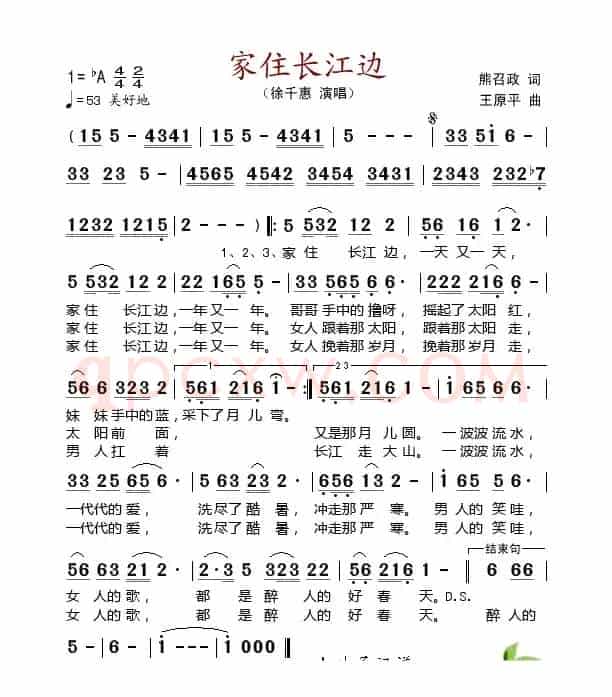 家住长江边
1=♭A 4/4 2/4
熊召政 词
♩=53 美好地
（徐千惠 演唱）
王原平 曲
(15 5 - 4341|15 5 - 4341|1 - - -|33 51 6 -|
33 23 5 -|4565 4542 3454 3431|2343 232♭7|
1232 1215|2 - - -)‖:5 532 12 2|56 16 12·|
1、2、3、家 住 长江 边，一天 又一 天，
5 532 12 2|22 165 5 -|33 565 6 6·|222 216 1 -|
家 住 长江边，一年 又一 年。 哥哥 手中的 撸呀， 摇起了 太阳 红，
家 住 长江边，一年 又一 年。 女人 跟着那 太阳， 跟着那 太阳 走，
家 住 长江边，一年 又一 年。 女人 挽着那 岁月， 挽着那 岁月 走，
1
2 3
56 6 323 2|561 216 1 -:‖561 216 2 -|1 65 65 3|
妹 妹 手中的 蓝，采下了 月 儿 弯。
太 阳 前 面， 又是那 月 儿 圆。 一 波波 流 水，
男 人 扛 着 长江 走 大山。 一 波波 流 水，
33 25 65 6·|563 23 2·|656 13 2·|1 65 56·|
一代代的 爱， 洗尽了 酷 暑， 冲走那 严 寒。 男 人的 笑 哇，
一代代的 爱， 洗尽了 酷 暑， 冲走那 严 寒。 男 人的 笑 哇，
结束句
56 63 22·|2·3 55 323 22|56 216 1 -|6 66|
女 人的 歌， 都 是 醉 人的 好 春 天。D.S.
女 人的 歌， 都 是 醉 人的 好 春 天。 醉 人的
5 -|1 - - -|1 000‖